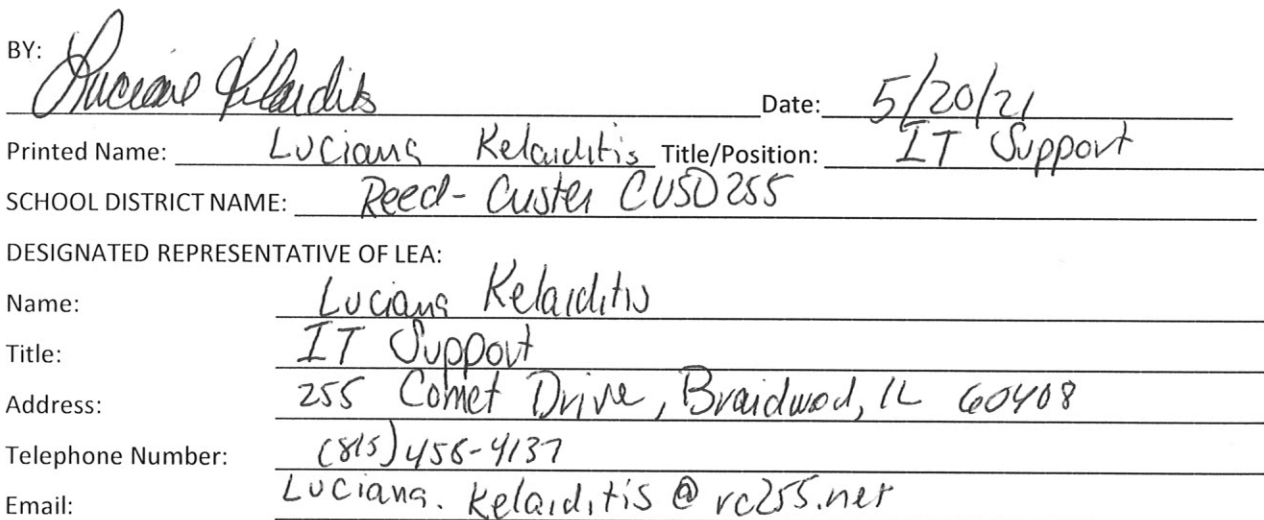 BY: Luciana Kelaiditis
Date: 5/20/21
Printed Name: Luciana Kelaiditis Title/Position: IT Support
SCHOOL DISTRICT NAME: Reed-Custer CUSD 255
DESIGNATED REPRESENTATIVE OF LEA:
Name: Luciana Kelaiditis
Title: IT Support
Address: 255 Comet Drive, Braidwood, IL 60408
Telephone Number: (815) 458-4137
Email: Luciana.Kelaiditis@rc255.net